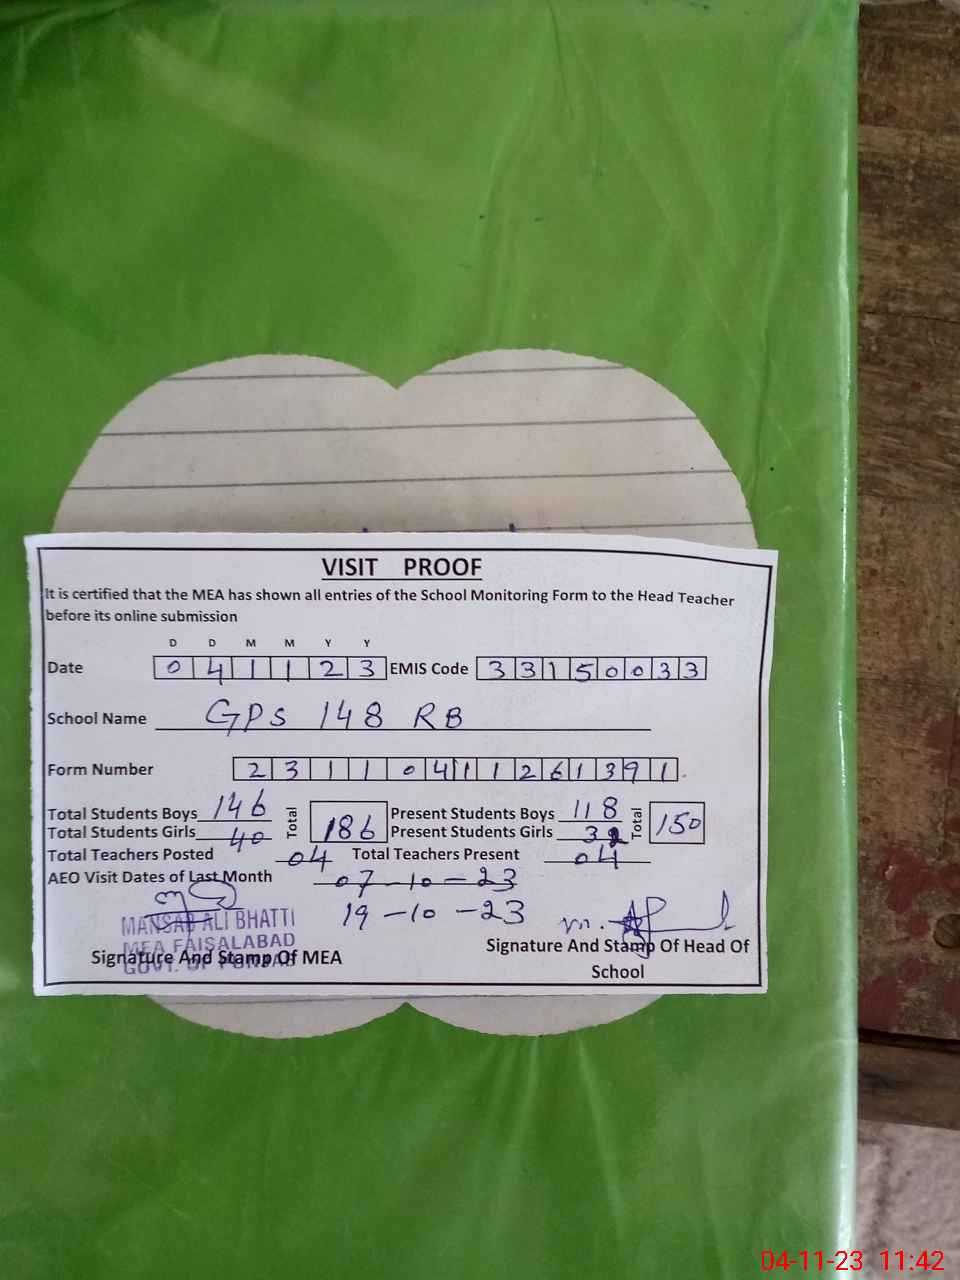 VISIT PROOF
It is certified that the MEA has shown all entries of the School Monitoring Form to the Head Teacher
before its online submission
D D M M Y Y
Date 0 4 1 1 2 3 EMIS Code 3 3 1 5 0 0 3 3
School Name GPS 148 RB
Form Number 2 3 1 1 0 4 1 1 2 6 1 3 9 1
Total Students Boys 146 Total 186 Present Students Boys 118 Total 150
Total Students Girls 40 Present Students Girls 32
Total Teachers Posted 04 Total Teachers Present 04
AEO Visit Dates of Last Month 07-10-23
19-10-23
MANSAB ALI BHATTI
MEA FAISALABAD
GOVT. OF PUNJAB
Signature And Stamp Of MEA
Signature And Stamp Of Head Of
School
04-11-23 11:42